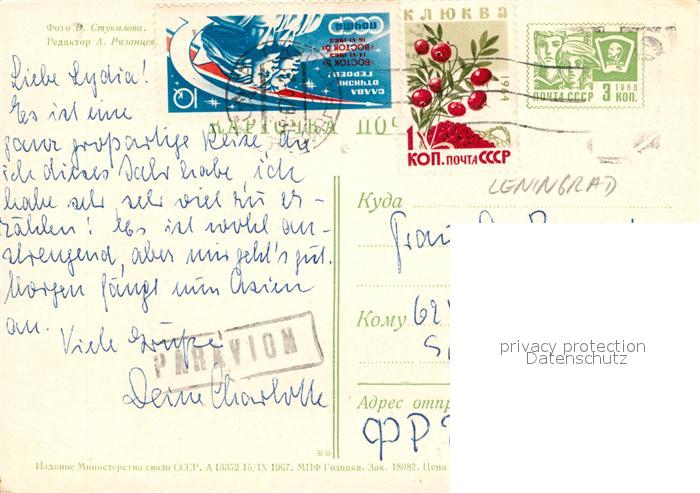 Фото В. Стукалова.
Редактор А. Рязанцев
Liebe Lydia!
Es ist eine
ganz großartige Reise, die
ich dieses Jahr habe, ich
habe sehr sehr viel zu er-
zählen! Es ist wohl an-
strengend, aber mir geht's gut.
Morgen fängt nun Asien
an. Viele Grüße
Deine Charlotte
PAR AVION
ПОЧТА
ВОСТОК 5
14-VI-1963
ВОСТОК 6
16-VI-1963
СЛАВА
ОТЧИЗНЕ
ГЕРОЕВ!
КЛЮКВА
1964
1 КОП. ПОЧТА СССР
1966
ПОЧТА СССР 3 КОП.
КАРТОЧКА ПОЧ
LENINGRAD
Куда
Frau
Кому 62
Адрес отпр
ФРГ
privacy protection
Datenschutz
Издание Министерства связи СССР. А 13352 15/IX 1967. МПФ Гознака. Зак. 18082. Цена